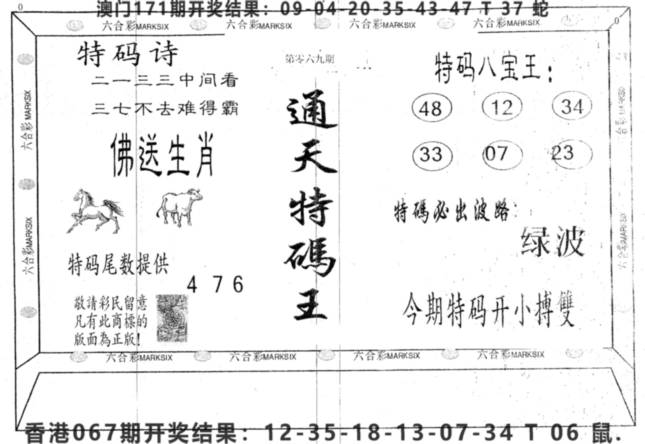 澳门171期开奖结果：09-04-20-35-43-47 T 37 蛇
六合彩MARKSIX 六合彩MARKSIX 六合彩MARKSIX 六合彩MARKSIX
特码诗
二一三三中间看
三七不去难得霸
佛送生肖
特码尾数提供
4 7 6
敬請彩民留意
凡有此商標的
版面為正版!
第零六九期
通天特碼王
特码八宝王：
48 12 34
33 07 23
特碼必出波路：
绿波
今期特码开小搏雙
六合彩MARKSIX
六合彩MARKSIX
六合彩MARKSIX 六合彩MARKSIX 六合彩MARKSIX 六合彩MARKSIX
香港067期开奖结果：12-35-18-13-07-34 T 06 鼠.